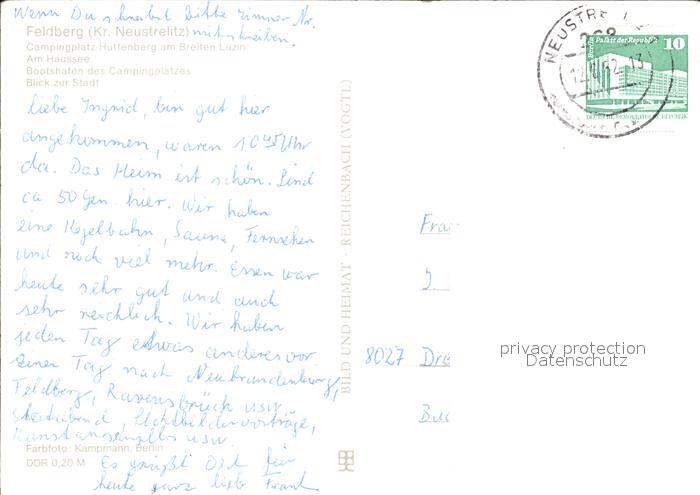 Wenn Du schreibst bitte Zimmer Nr.
mitschreiben.
Feldberg (Kr. Neustrelitz)
Campingplatz Hüttenberg am Breiten Luzin
Am Haussee
Bootshafen des Campingplatzes
Blick zur Stadt
liebe Ingrid, bin gut hier
angekommen, waren 10 45 Uhr
da. Das Heim ist schön. Sind
ca 50 Gen hier. Wir haben
eine Kegelbahn, Sauna, Fernsehen
und noch viel mehr. Essen war
heute sehr gut und auch
sehr reichlich. Wir haben
jeden Tag etwas anderes vor
einen Tag nach Neubrandenburg,
Feldberg, Ravensbrück usw.
Skatabend, Lichtbildervorträge,
usw.
Farbfoto: Kampmann, Berlin
DDR 0,20 M
Es grüßt Dich für
heute ganz lieb Frank
BILD UND HEIMAT · REICHENBACH (VOGTL)
NEUSTRE
Berlin Palast der Republik
10
DEUTSCHE DEMOKRATISCHE REPUBLIK
Frau
J
8027 Dre
privacy protection
Datenschutz